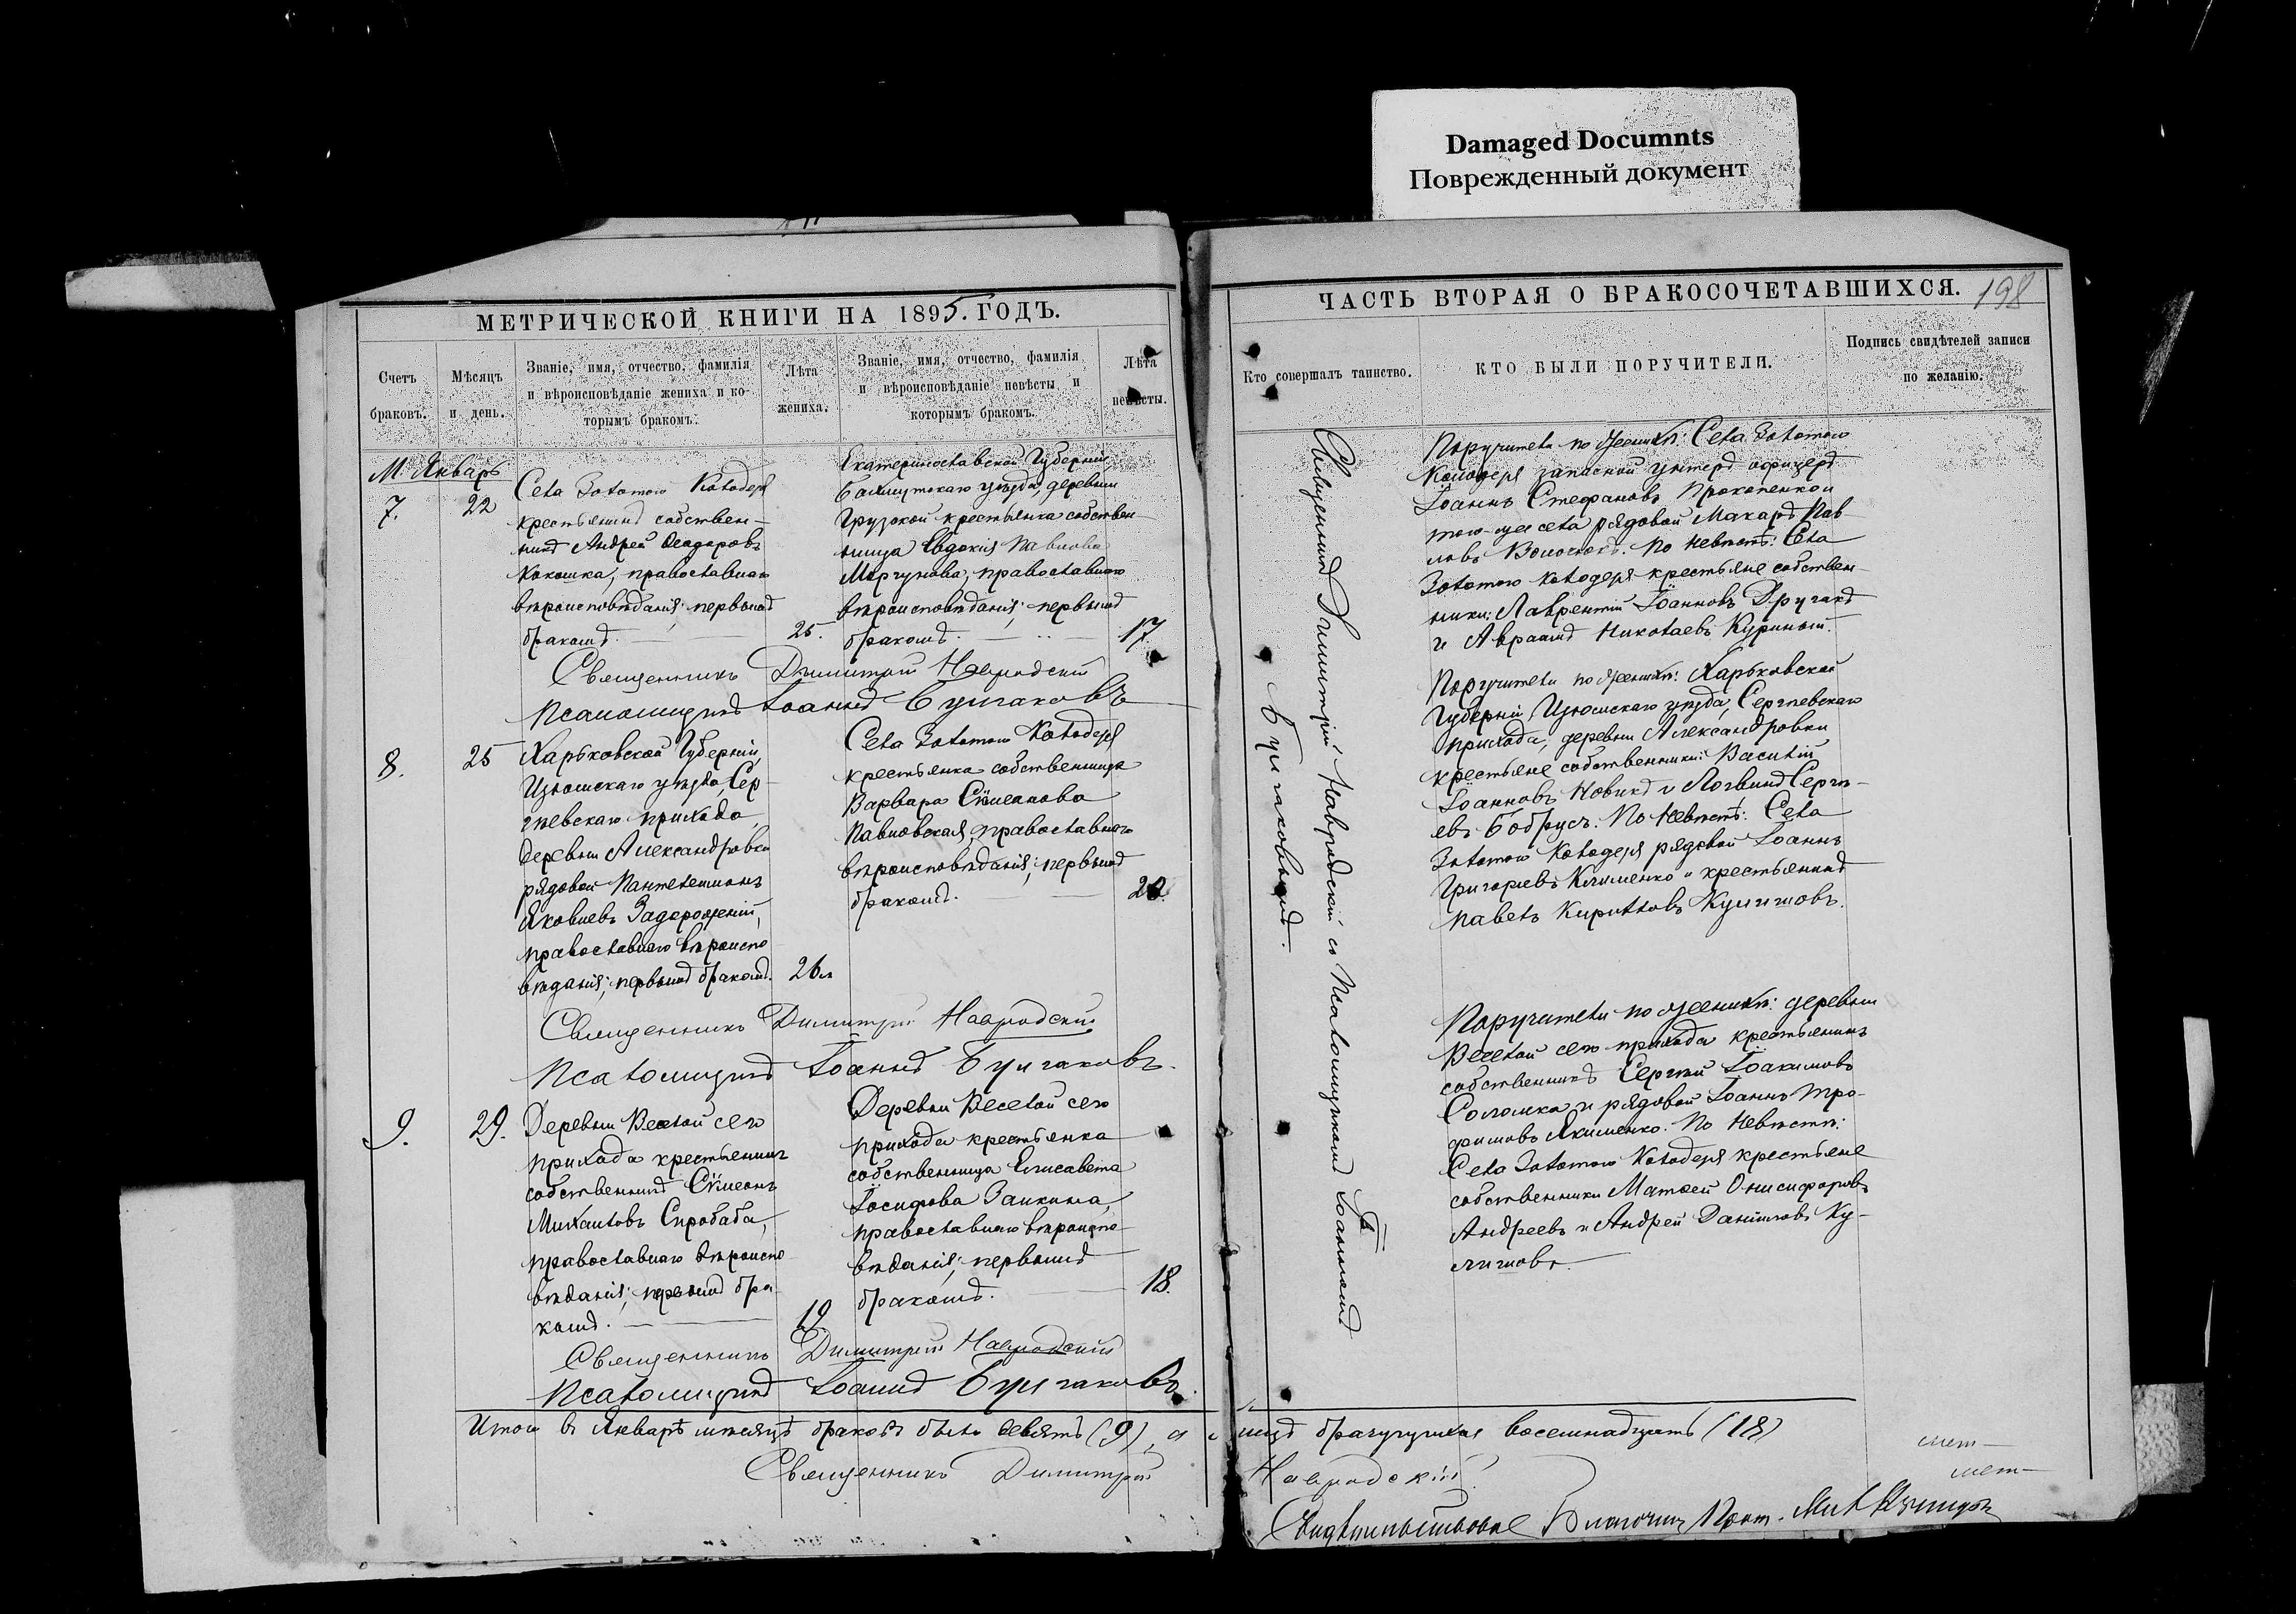 Damaged Documnts
Поврежденный документ
МЕТРИЧЕСКОЙ КНИГИ НА 1895. ГОДЪ.
Счетъ
браковъ.
Мѣсяцъ
и день.
Званіе, имя, отчество, фамилія
и вѣроисповѣданіе жениха и ко-
торымъ бракомъ.
Лѣта
жениха.
Званіе, имя, отчество, фамилія
и вѣроисповѣданіе невѣсты и
которымъ бракомъ.
Лѣта
невѣсты.
М. Январь
7.
22
Села Золотого Колодезя
крестьянинъ собствен-
никъ Андрей Ѳеодоровъ
Кокошка, православнаго
вѣроисповѣданія; первымъ
бракомъ.
25.
Екатеринославской Губерніи,
Бахмутскаго уѣзда, деревни
Грузской крестьянка собствен
ница Евдокія Павлова
Моргунова, православнаго
вѣроисповѣданія; первымъ
бракомъ.
17.
Священникъ Димитрій Навродскій
Псаломщикъ Іоаннъ Булгаковъ
8.
25
Харьковской Губерніи,
Изюмскаго уѣзда, Сер-
гіевскаго прихода,
деревни Александровки
рядовой Пантелеимонъ
Яковлевъ Задорожній,
православнаго вѣроиспо
вѣданія; первымъ бракомъ.
26л
Села Золотого Колодезя
крестьянка собственница
Варвара Сѵмеонова
Павловская, православнаго
вѣроисповѣданія; первымъ
бракомъ.
20.
Священникъ Димитрій Навродскій
Псаломщикъ Іоаннъ Булгаковъ.
9.
29.
Деревни Веселой сего
прихода крестьянинъ
собственникъ Сѵмеонъ
Михаиловъ Скробаба,
православнаго вѣроиспо-
вѣданія; первымъ бра-
комъ.
19
Деревни Веселой сего
прихода крестьянка
собственница Елисавета
Іосифова Заикина,
православнаго вѣроиспо-
вѣданія; первымъ
бракомъ.
18.
Священникъ Димитрій Навродскій
Псаломщикъ Іоаннъ Булгаковъ.
Итого въ Январѣ мѣсяцѣ браковъ было девять (9), а лицъ брачущихся восемнадцать (18)
Священникъ Димитрій Навродскій
ЧАСТЬ ВТОРАЯ О БРАКОСОЧЕТАВШИХСЯ.
198
Кто совершалъ таинство.
КТО БЫЛИ ПОРУЧИТЕЛИ.
Подпись свидѣтелей записи
по желанію.
Священникъ Димитрій Навродскій со Псаломщикомъ Іоанномъ
Булгаковымъ.
Поручители по женихѣ: Села Золотого
Колодезя запасной унтеръ офицеръ
Іоаннъ Стефановъ Прокопенко и
того-же села рядовой Макаръ Пав-
ловъ Волочокъ. По невѣстѣ: Села
Золотого Колодезя крестьяне собствен-
ники: Лаврентій Іоанновъ Другакъ
и Авраамъ Николаевъ Куриный.
Поручители по женихѣ: Харьковской
Губерніи, Изюмскаго уѣзда, Сергіевскаго
прихода, деревни Александровки
крестьяне собственники: Василій
Іоанновъ Новикъ и Логвинъ Сергѣ-
евъ Бобрусъ. По невѣстѣ: Села
Золотого Колодезя рядовой Іоаннъ
Григорьевъ Клименко и крестьянинъ
Павелъ Кирилловъ Кулишовъ.
Поручители по женихѣ: деревни
Веселой сего прихода крестьянинъ
собственникъ Сергій Іоакимовъ
Соломка и рядовой Іоаннъ Тро-
фимовъ Якименко. По невѣстѣ:
Села Золотого Колодезя крестьяне
собственники Матѳей Онисифоровъ
Андреевъ и Андрей Даніиловъ Ку-
лишовъ.
Свидѣтельствовалъ Благочин. Прот. Мих.